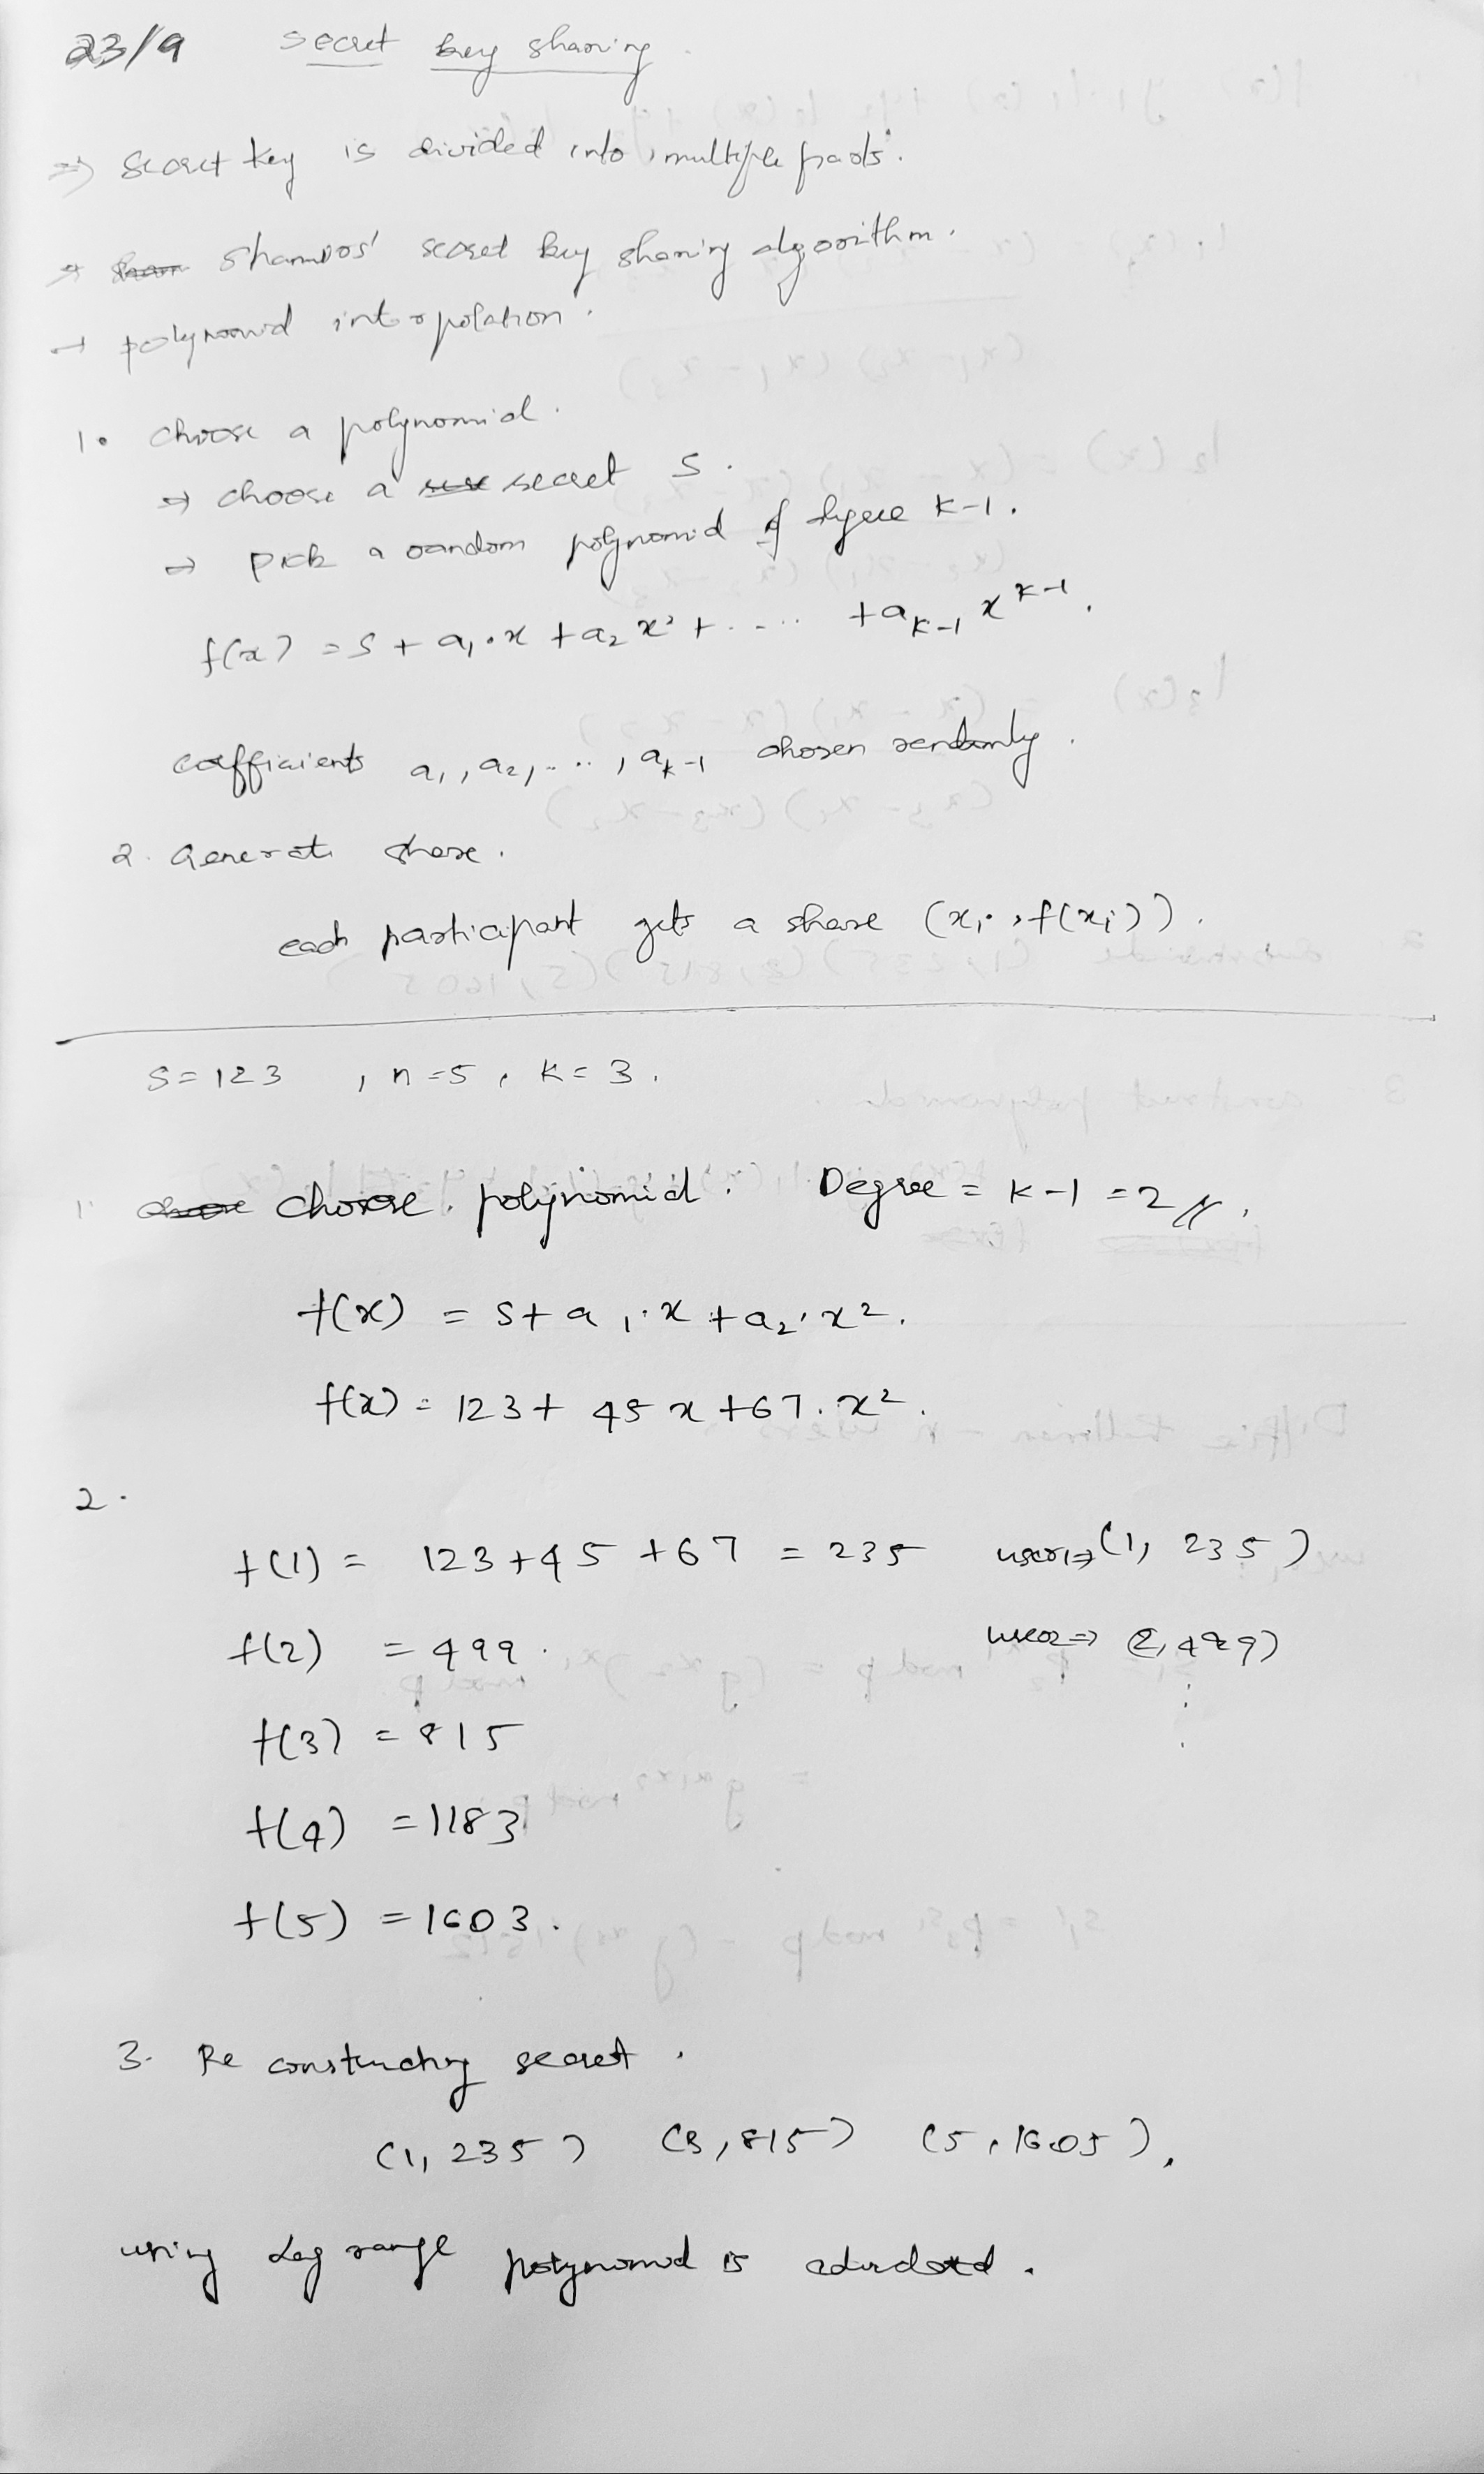 23/9 secret key sharing
⇒ secret key is divided into multiple parts.
→ shamirs' secret key sharing algorithm.
→ polynomial interpolation.
1. choose a polynomial.
⇒ choose a secret S.
⇒ pick a random polynomial of degree k-1.
f(x) = S + a₁.x + a₂x² + ..... + aₖ₋₁ xᵏ⁻¹.
coefficients a₁, a₂, ...., aₖ₋₁ chosen randomly.
2. Generate share.
each participant gets a share (xᵢ, f(xᵢ)).
S = 123 , n = 5 , k = 3.
1. choose polynomial. Degree = k-1 = 2 //.
f(x) = S + a₁.x + a₂.x².
f(x) = 123 + 45x + 67.x².
2.
f(1) = 123 + 45 + 67 = 235 user1⇒(1, 235)
f(2) = 499. user2⇒ (2, 499)
f(3) = 815
f(4) = 1183
f(5) = 1603.
3. Reconstructing secret.
(1, 235) (3, 815) (5, 1605).
using Lagrange polynomial is